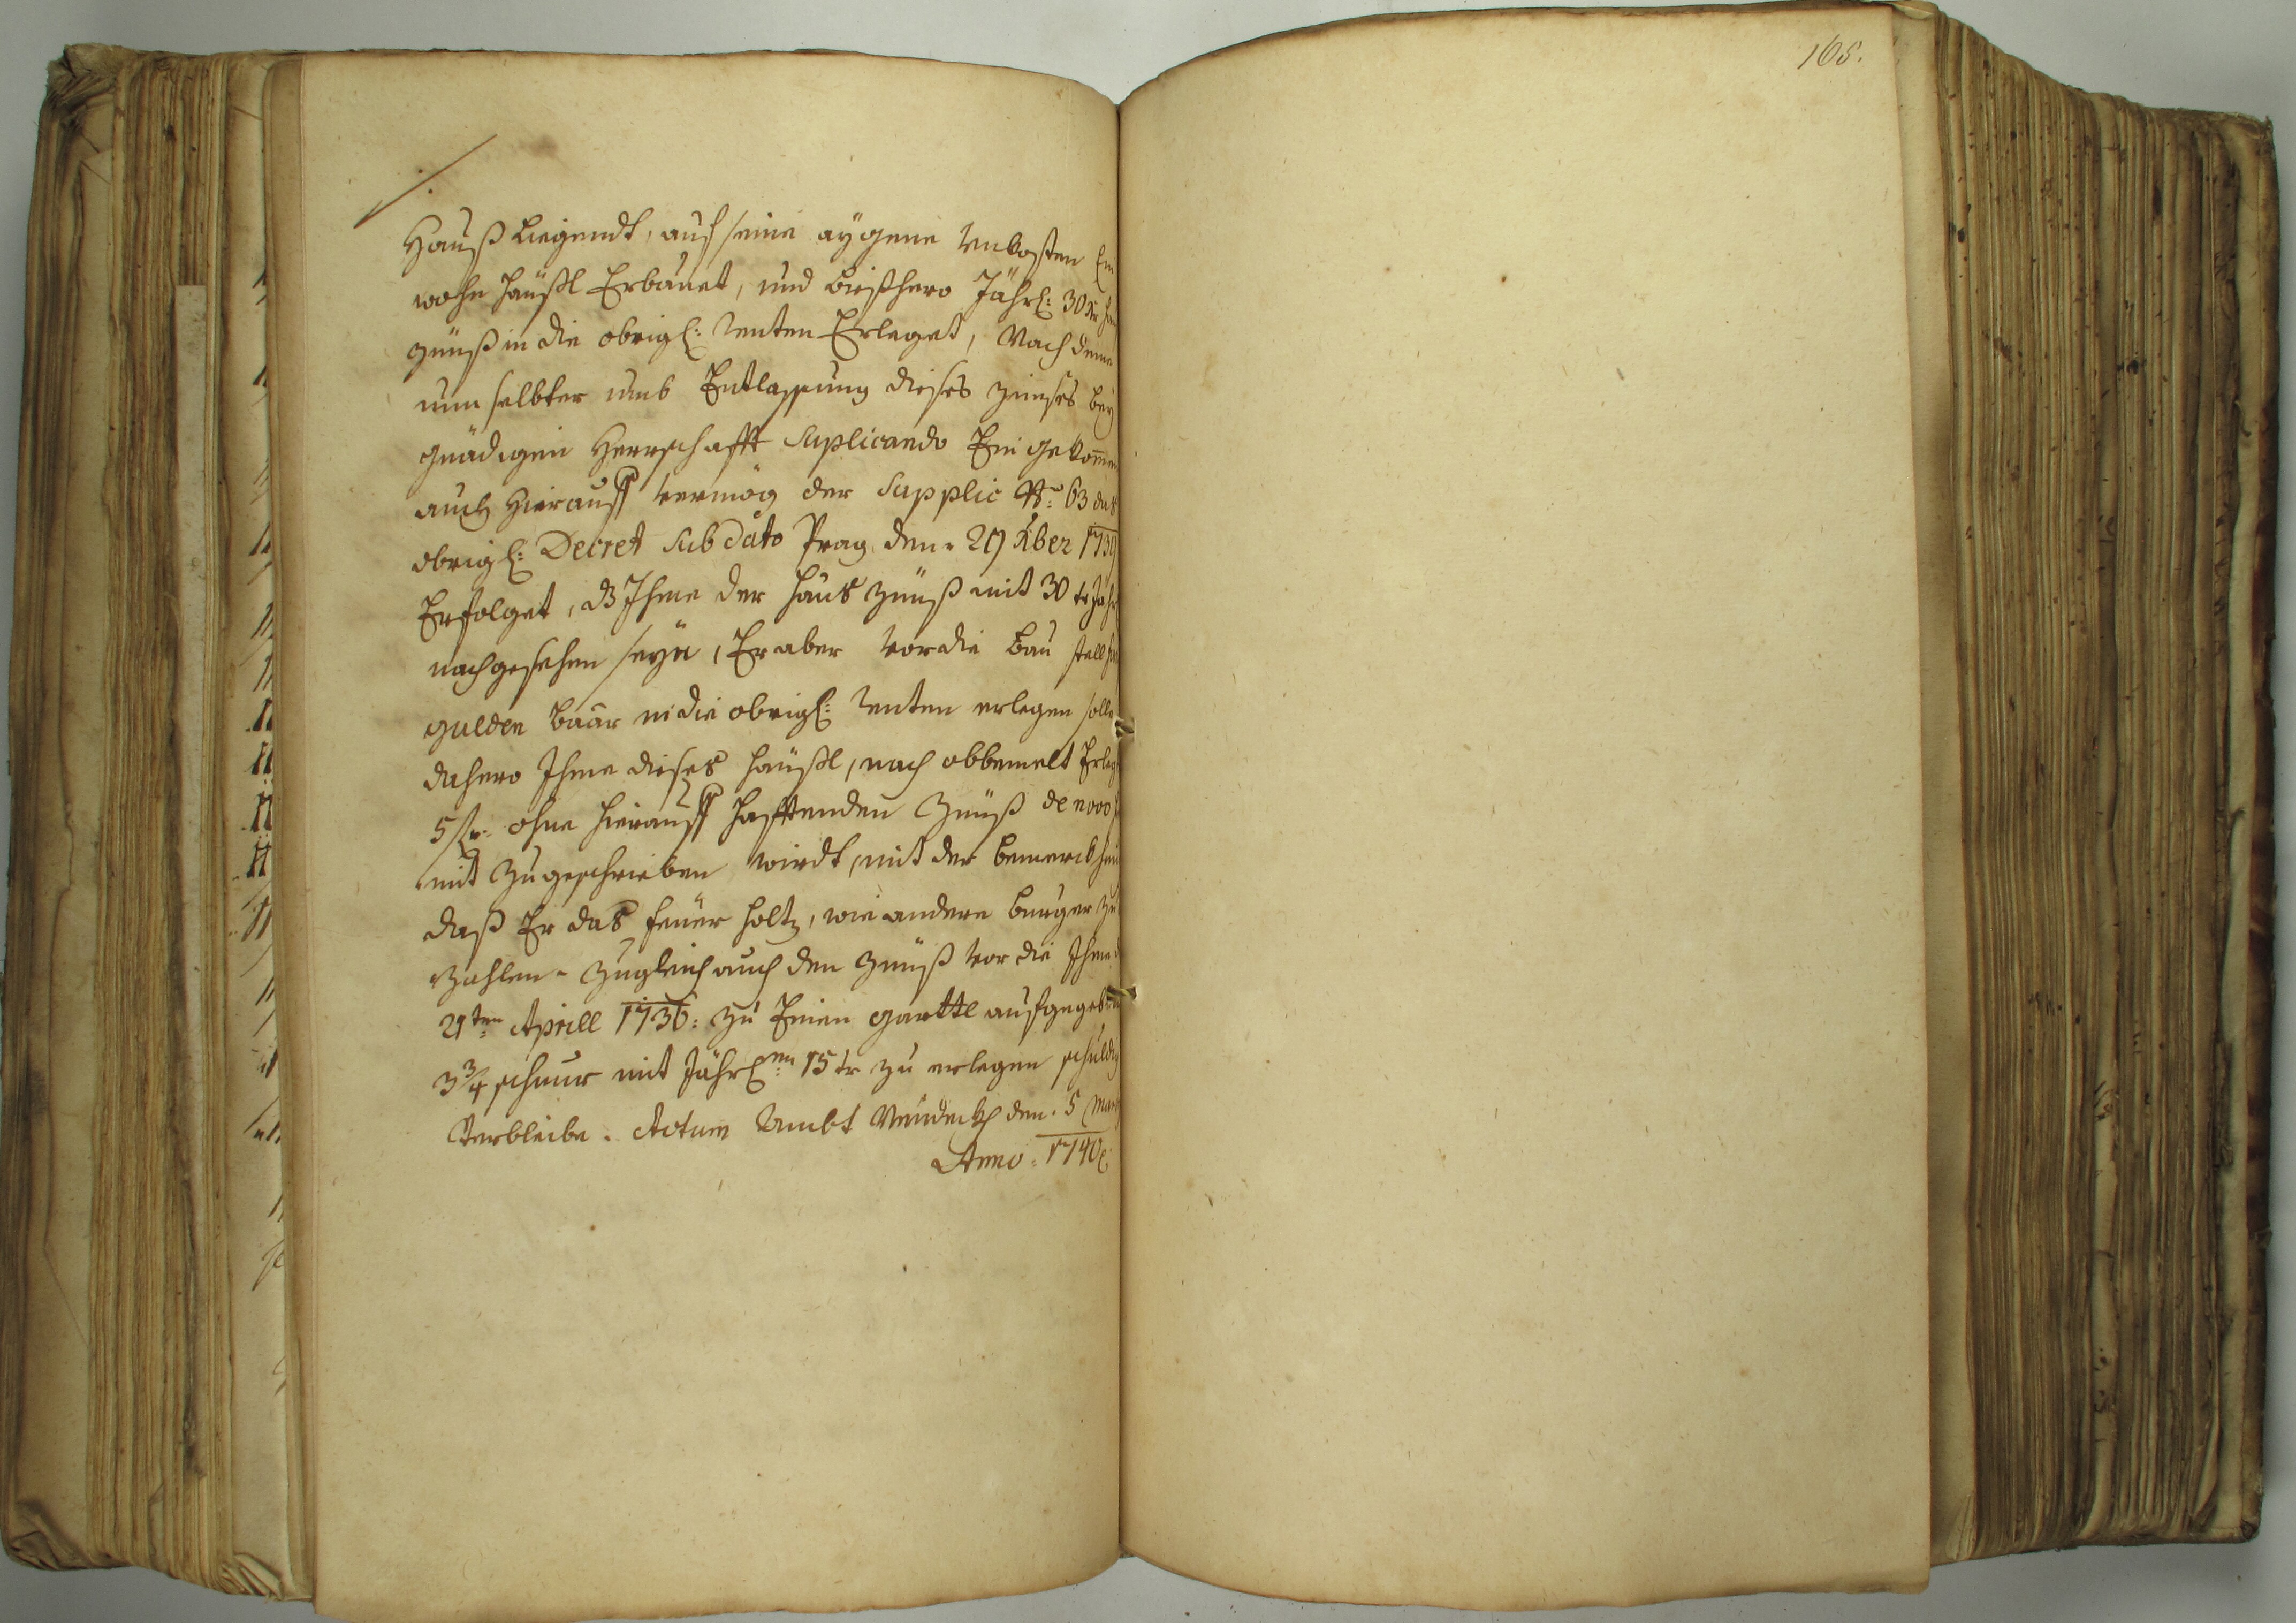 165.
Hauß Liegendt, auf seine aygene Unkosten Ein
wohn häußl Erbauet, und bießhero Jährl: 30 kr
zünß in die obrigl: Renten Erleget, Nach deme
nun selbter umb Entlassung dieses zinses bey
gnädigen Herrschafft Suplicando Ein gekommen
auch hierauff vermög der Supplic No: 63 das
obrigl: Decret sub dato Prag den 29 Xber 1739
Erfolget, dz Ihme der hauszünß mit 30 kr Jähr
nachgesehen seyn, Er aber vor die Bau stell
gulden baar in die obrigl: Renten erlegen solle
dahero Ihme dieses häußl, nach obbemelt Erleg
5 fl: ohne hierauff hafftenden Zünß de novo
mit zugeschrieben wirdt, mit der bemerckh
daß Er das feüer holtz, wie andere burger zu
zahlen - zugleich auch den Zünß vor die Ihme
21ten Aprill 1736: zu Einen garttl ausgegeben
3 3/4 schnur mit Jährl:en 15 kr zu erlegen schuldig
Verbleibe. Actum Ambt Neüdeckh den 5 Marty
Anno: 1740